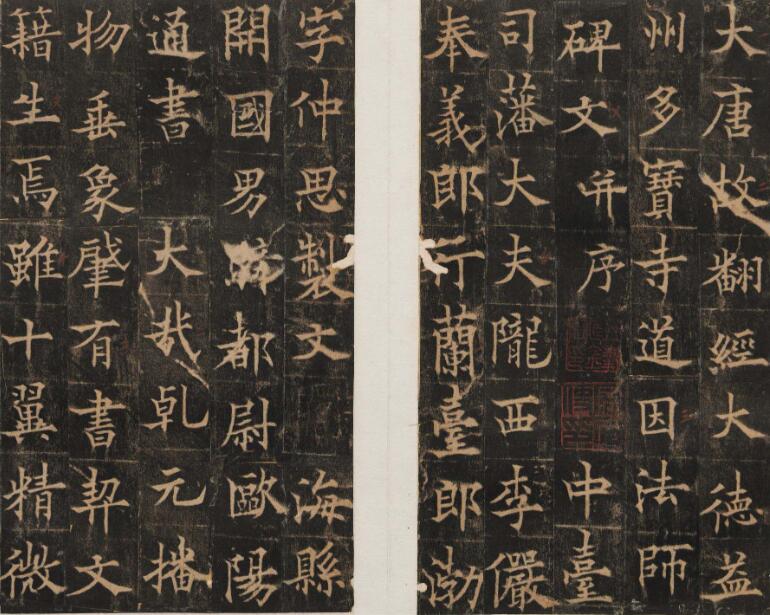 大唐故翻經大德益
州多寶寺道因法師
碑文并序 中臺
司藩大夫隴西李儼
奉義郎行蘭臺郎渤
字仲思製文 海縣
開國男都尉歐陽
通書 大哉乾元播
物垂象肇有書契文
籍生焉雖十翼精微